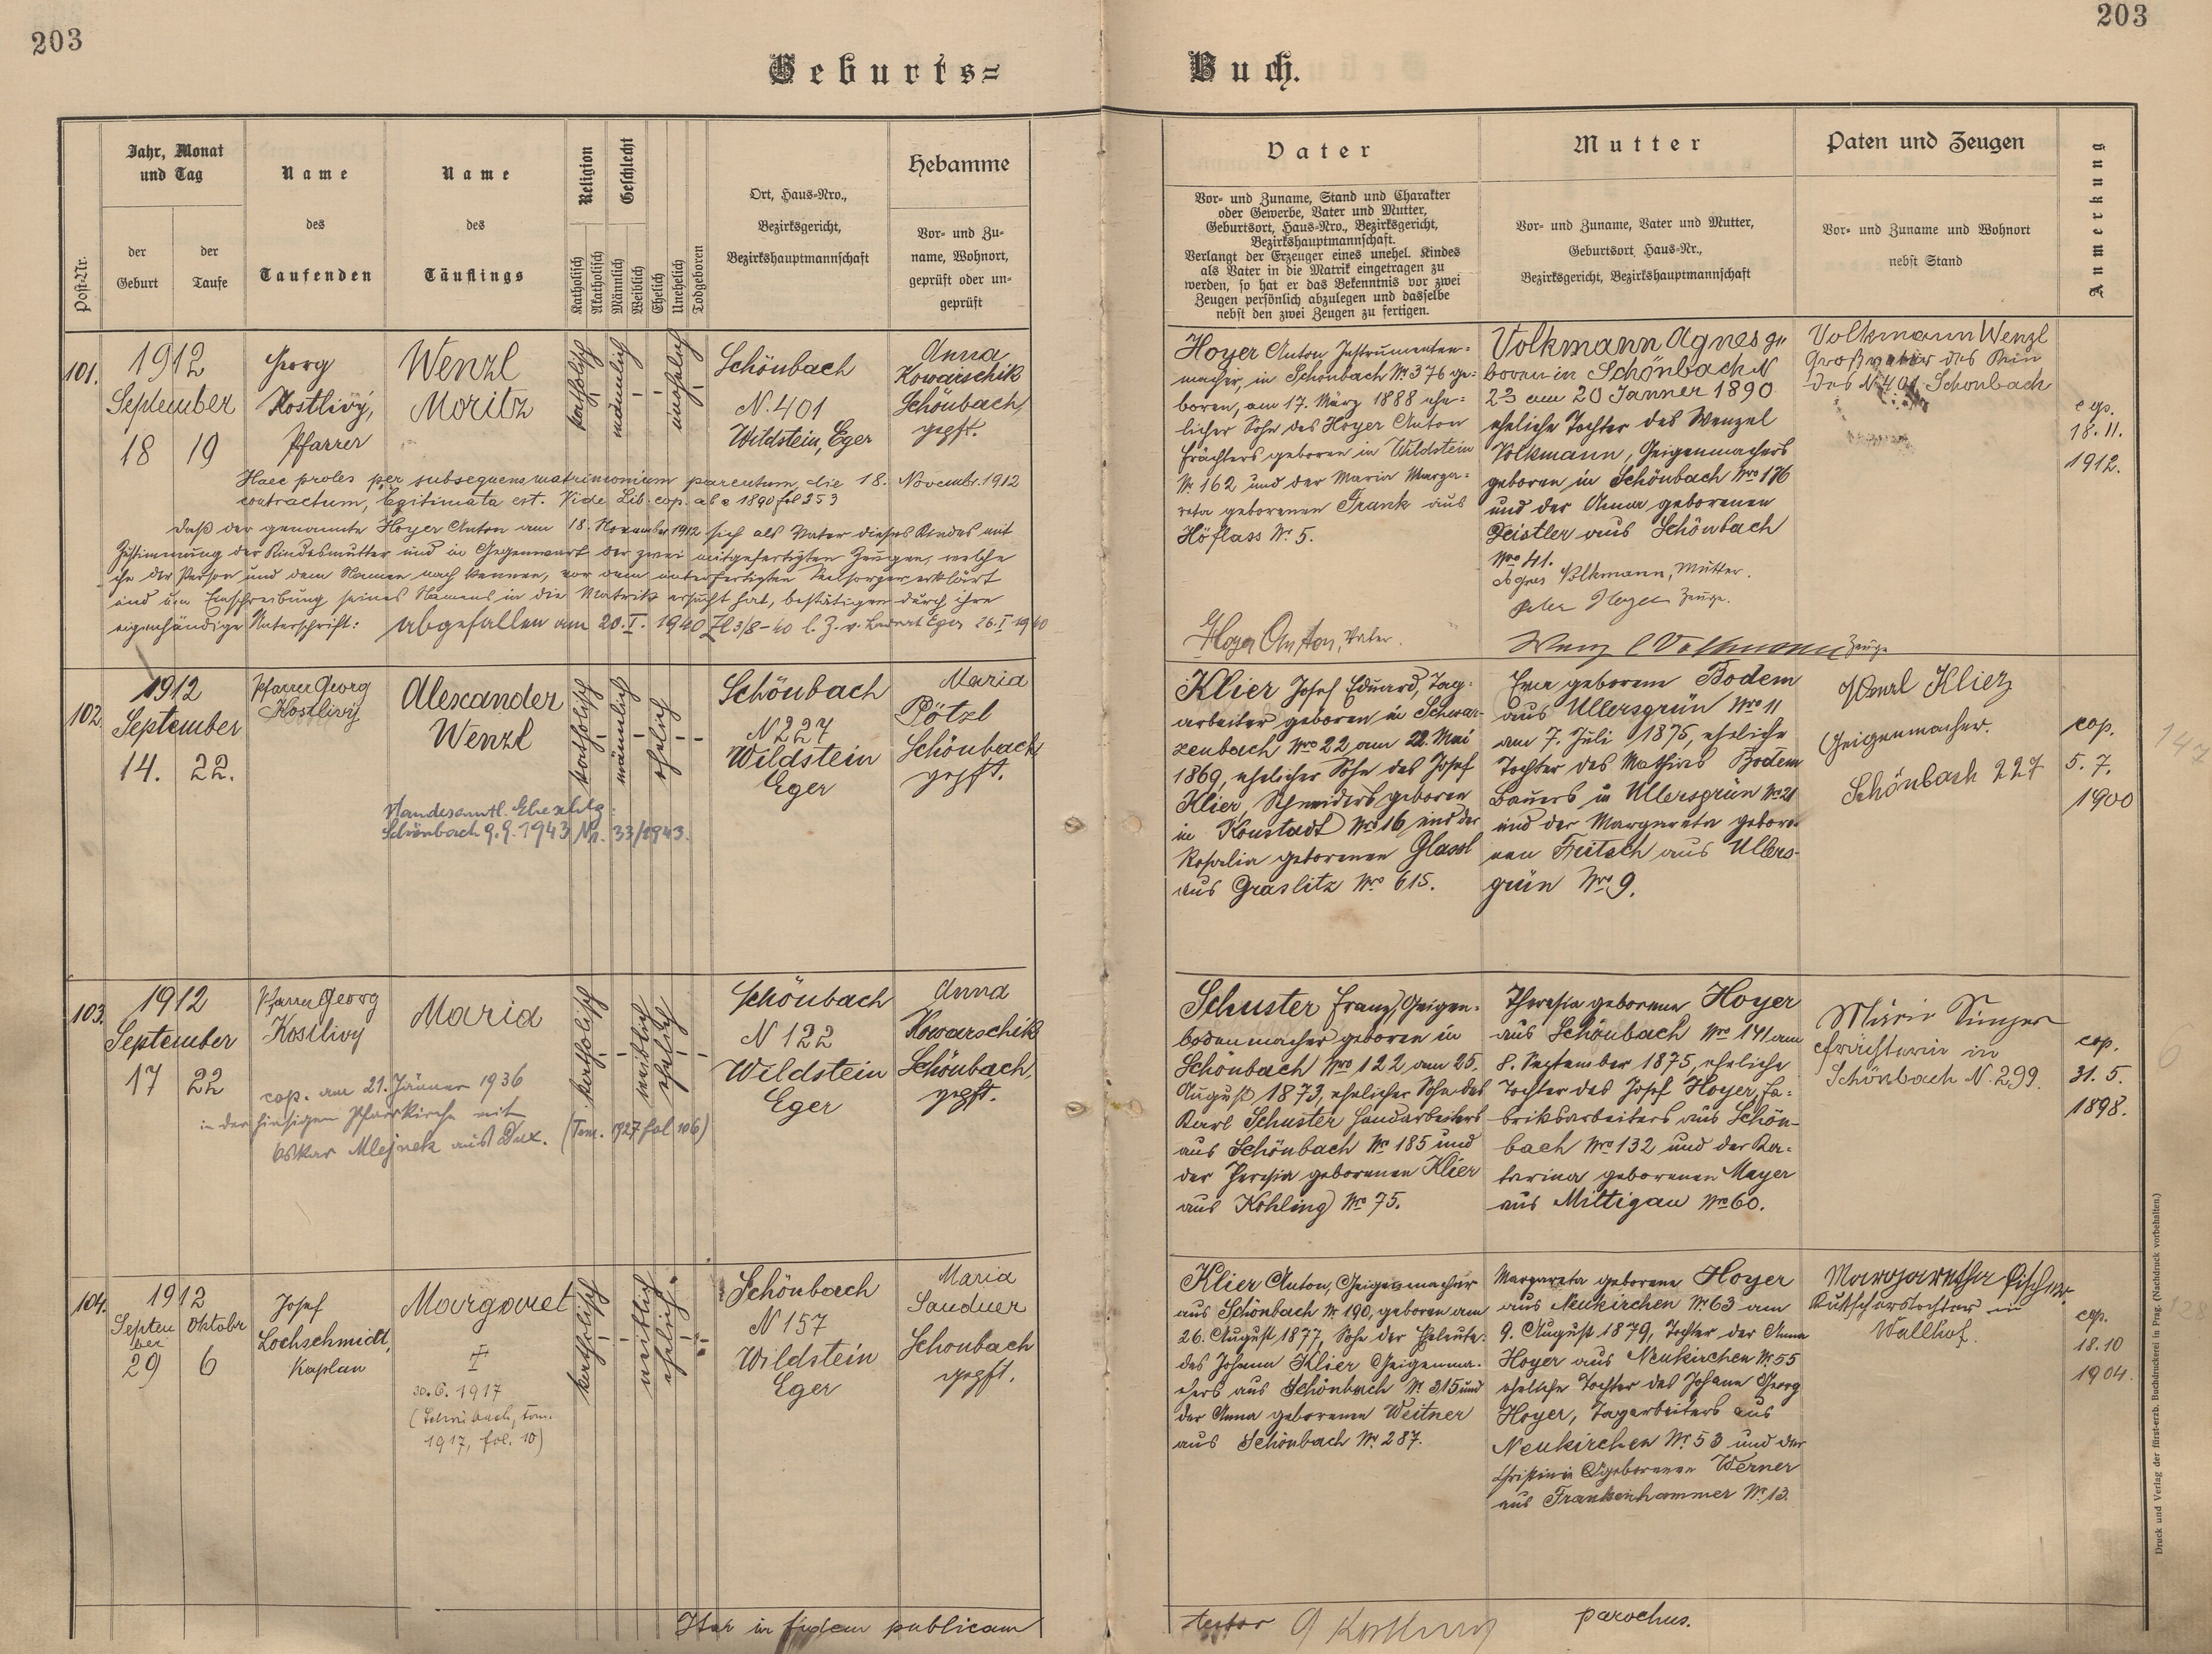 203
203
Geburts=
Buch.
Post-Nr.
Jahr, Monat
und Tag
der
Geburt
der
Taufe
Name
des
Taufenden
Name
des
Täuflings
Religion
Katholisch
Akatholisch
Geschlecht
Männlich
Weiblich
Ehelich
Unehelich
Todgeboren
Ort, Haus=Nro.,
Bezirksgericht,
Bezirkshauptmannschaft
Hebamme
Vor= und Zu=
name, Wohnort,
geprüft oder un=
geprüft
Vater
Vor= und Zuname, Stand und Charakter
oder Gewerbe, Vater und Mutter,
Geburtsort, Haus=Nro., Bezirksgericht,
Bezirkshauptmannschaft.
Verlangt der Erzeuger eines unehel. Kindes
als Vater in die Matrik eingetragen zu
werden, so hat er das Bekenntnis vor zwei
Zeugen persönlich abzulegen und dasselbe
nebst den zwei Zeugen zu fertigen.
Mutter
Vor= und Zuname, Vater und Mutter,
Geburtsort, Haus=Nr.,
Bezirksgericht, Bezirkshauptmannschaft
Paten und Zeugen
Vor= und Zuname und Wohnort
nebst Stand
Anmerkung
101.
1912
September
18 19
Georg
Kostlivý,
Pfarrer
Wenzl
Moritz
katholisch
männlich
unehelich
Schönbach
N. 401
Wildstein, Eger
Anna
Kowarschik
Schönbach,
gepft.
Haec proles per subsequens matrimonium parentum, die 18. Novembr. 1912
contractum, legitimata est. Vide Lib. cop. ab a 1890 fol 253
Daß der genannte Hoyer Anton am 18. November 1912 sich als Vater dieses Kindes mit
Zustimmung der Kindesmutter und in Gegenwart der zwei mitgefertigten Zeugen, welche
ihn der Person und dem Namen nach kennen, vor dem unterfertigten Seelsorger erklärt
und um Einschreibung seines Namens in die Matrik ersucht hat, bestätigen durch ihre
eigenhändige Unterschrift:
abgefallen am 20. I. 1940 Zl 3/8-40 l. Z. v. Landrat Eger 26. I 1940
Hoyer Anton Instrumenten=
macher, in Schönbach Nr. 376 ge=
boren, am 17. März 1888 ehe=
licher Sohn des Hoyer Anton
Frächters geboren in Wildstein
Nr. 162 und der Maria Marga=
reta geborenen Frank aus
Höflass Nr. 5.
Hoyer Anton, Vater.
Volkmann Agnes ge
boren in Schönbach N
23 am 20 Jänner 1890
eheliche Tochter des Wenzel
Volkmann, Geigenmachers
geboren in Schönbach Nro 176
und der Anna geborenen
Deistler aus Schönbach
Nro 41.
Agnes Volkmann, Mutter.
Hoyer Zeuge.
Wenzl Volkmann Zeuge
Volkmann Wenzl
Großvater des Kin
des N. 401 Schönbach
cop.
18. 11.
1912.
102.
1912
September
14. 22.
Pfarrer Georg
Kostlivý
Alexander
Wenzl
katholisch
männlich
ehelich
Schönbach
N 227
Wildstein
Eger
Maria
Pötzl
Schönbach
gepft.
Standesamtl. Eheschlg.
Schönbach 9. 9. 1943 Nr. 33/1943.
Klier Josef Eduard, Tag=
arbeiter geboren in Schwar=
zenbach Nro 22 am 22. Mai
1869, ehelicher Sohn des Josef
Klier, Schneiders geboren
in Konstadt Nro 16 und der
Rosalia geborenen Glassl
aus Graslitz Nro 615.
Eva geborene Bodem
aus Ullersgrün Nro 11
am 7. Juli 1875, eheliche
Tochter des Mathias Bodem
Bauers in Ullersgrün Nro 21
und der Margareta gebore=
nen Fritsch aus Ullers=
grün Nro 9.
Klier
Geigenmacher.
Schönbach 227
cop.
5. 7.
1900
147
103.
1912
September
17 22
Pfarrer Georg
Kostlivý
Maria
katholisch
weiblich
ehelich
Schönbach
N 122
Wildstein
Eger
Anna
Kowarschik
Schönbach,
gepft.
cop. am 21. Jänner 1936
in der hiesigen Pfarrkirche mit
Oskar Mlejnek aus Dux. (Tom. 1927 fol 106)
Schuster Franz, Geigen=
bodenmacher geboren in
Schönbach Nro 122 am 25.
August 1873, ehelicher Sohn des
Karl Schuster Handarbeiters
aus Schönbach Nr. 185 und
der Theresia geborenen Klier
aus Kohling Nro 75.
Theresia geborene Hoyer
aus Schönbach Nro 141 am
8. September 1875, eheliche
Tochter des Josef Hoyer, Fa=
briksarbeiters aus Schön=
bach Nro 132 und der Ka=
tarina geborenen Mayer
aus Miltigau Nro 60.
Marie Singer
Frächterin in
Schönbach N. 299.
cop.
31. 5.
1898.
6
104.
1912
Septem
ber
Oktober
29 6
Josef
Lochschmidt,
Kaplan
Margaret
‡
30. 6. 1917
(Schönbach, tom.
1917, fol. 10)
katholisch
weiblich
ehelich
Schönbach
N 157
Wildstein
Eger
Maria
Sandner
Schönbach
gepft.
Klier Anton, Geigenmacher
aus Schönbach Nr. 190, geboren am
26. August 1877, Sohn der Eheleute:
des Johann Klier Geigenma=
chers aus Schönbach Nr. 315 und
der Anna geborenen Weitner
aus Schönbach Nr. 287.
Margareta geborene Hoyer
aus Neukirchen Nr. 63 am
9. August 1879, Tochter der Anna
Hoyer aus Neukirchen Nr. 55
eheliche Tochter des Johann Georg
Hoyer, Tagarbeiters aus
Neukirchen Nr. 53 und der
Christina geborenen Werner
aus Frankenhammer Nr. 13.
Margaretha Fischer
Kutscherstochter in
Wallhof.
cop.
18. 10
1904.
128
Ita in fidem publicam
testor G Kostlivý parochus.
Druck und Verlag der fürst-erzb. Buchdruckerei in Prag. (Nachdruck vorbehalten.)